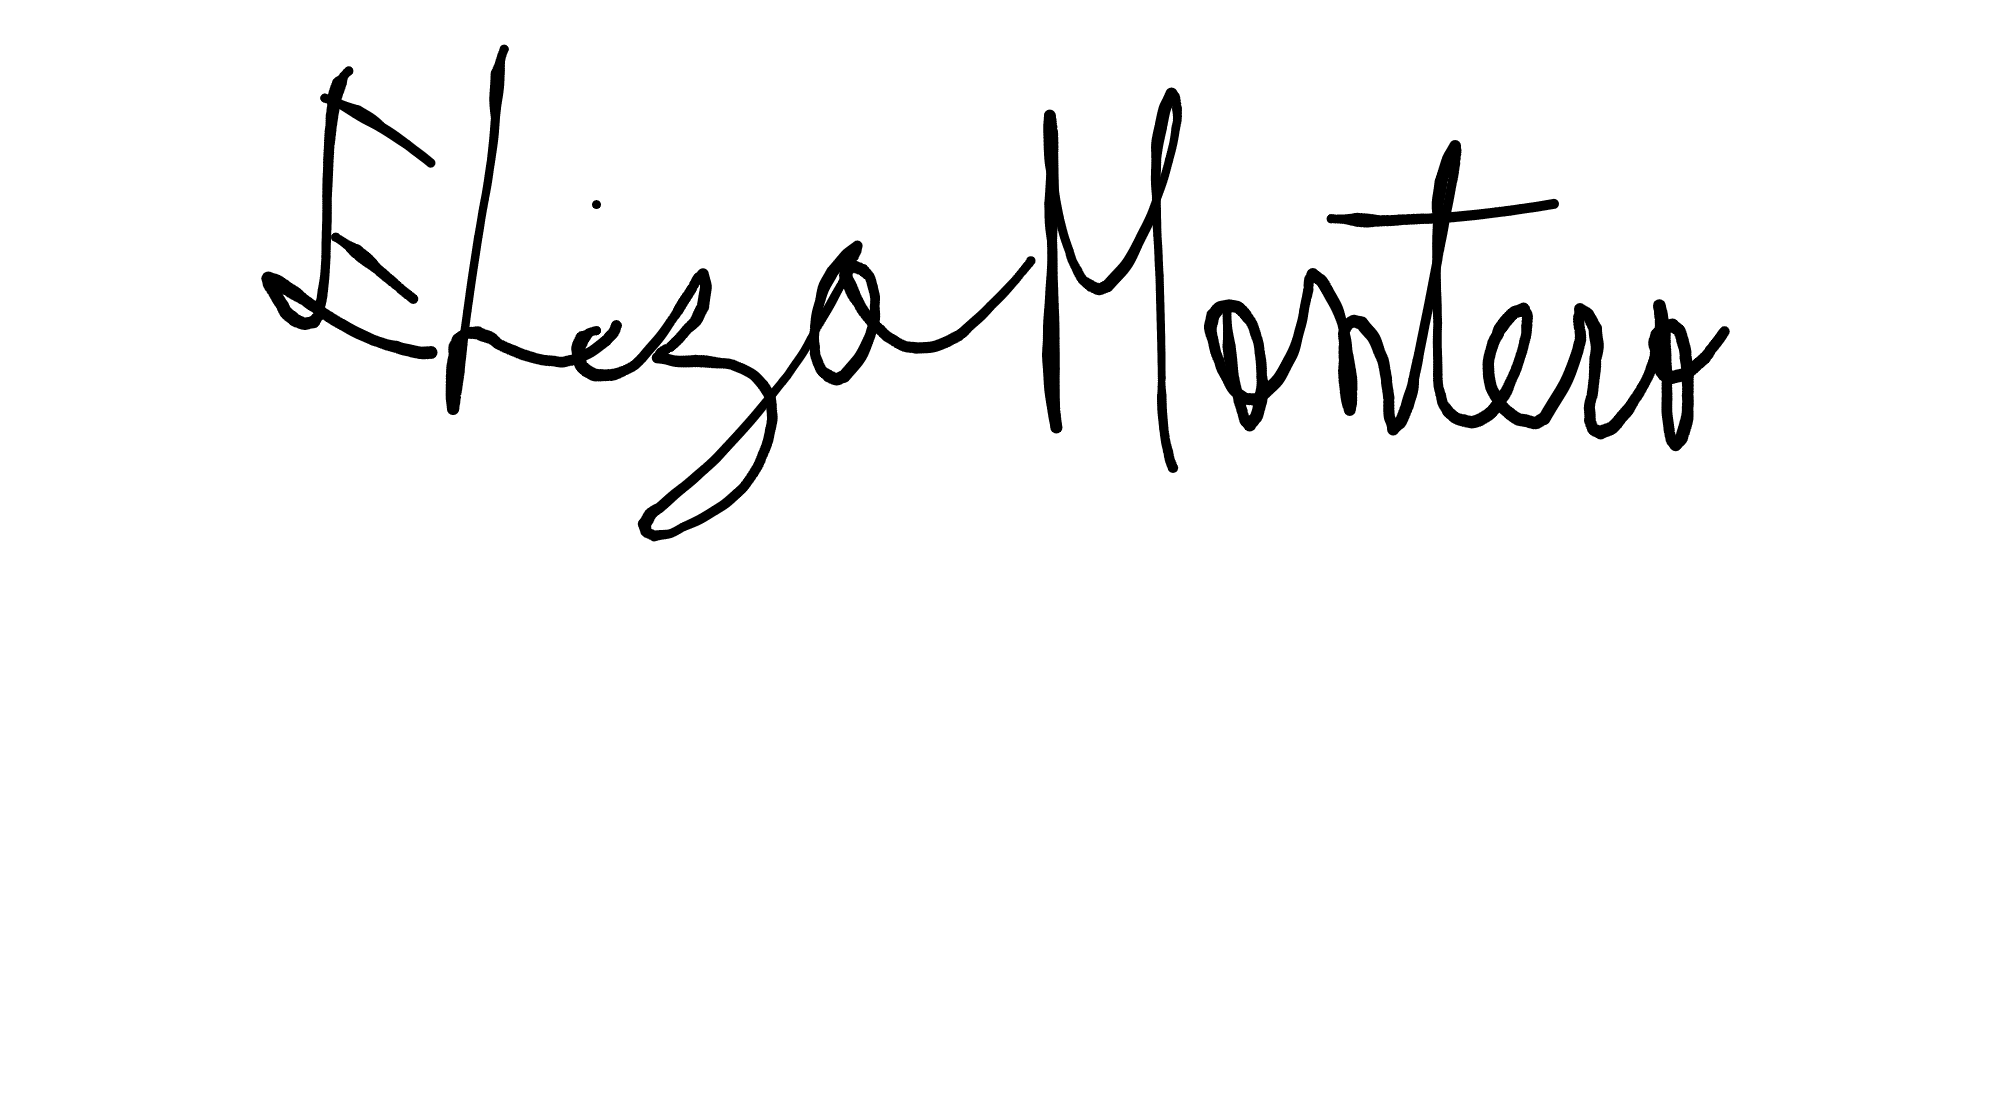 Eliza Montero